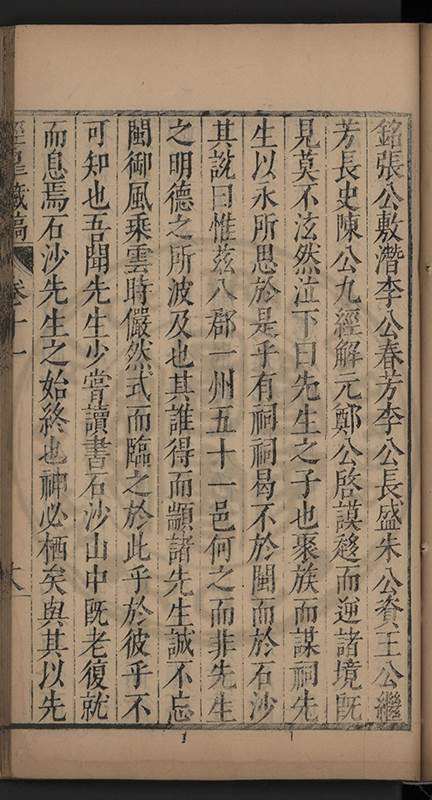 銘張公敷潛李公春芳李公長盛朱公賚王公繼
芳長史陳公九經解元鄭公啓謨迻而逆諸境既
見莫不泫然泣下曰先生之子也聚族而謀祠先
生以永所思於是乎有祠祠曷不於閩而於石沙
其說曰惟茲八郡一州五十一邑何之而非先生
之明德之所波及也其誰得而顓諸先生誠不忘
閩御風乘雲時儼然式而臨之於此乎於彼乎不
可知也吾聞先生少嘗讀書石沙山中既老復就
而息焉石沙先生之始終也神必栖矣與其以先
涇臯藏稿
卷十一